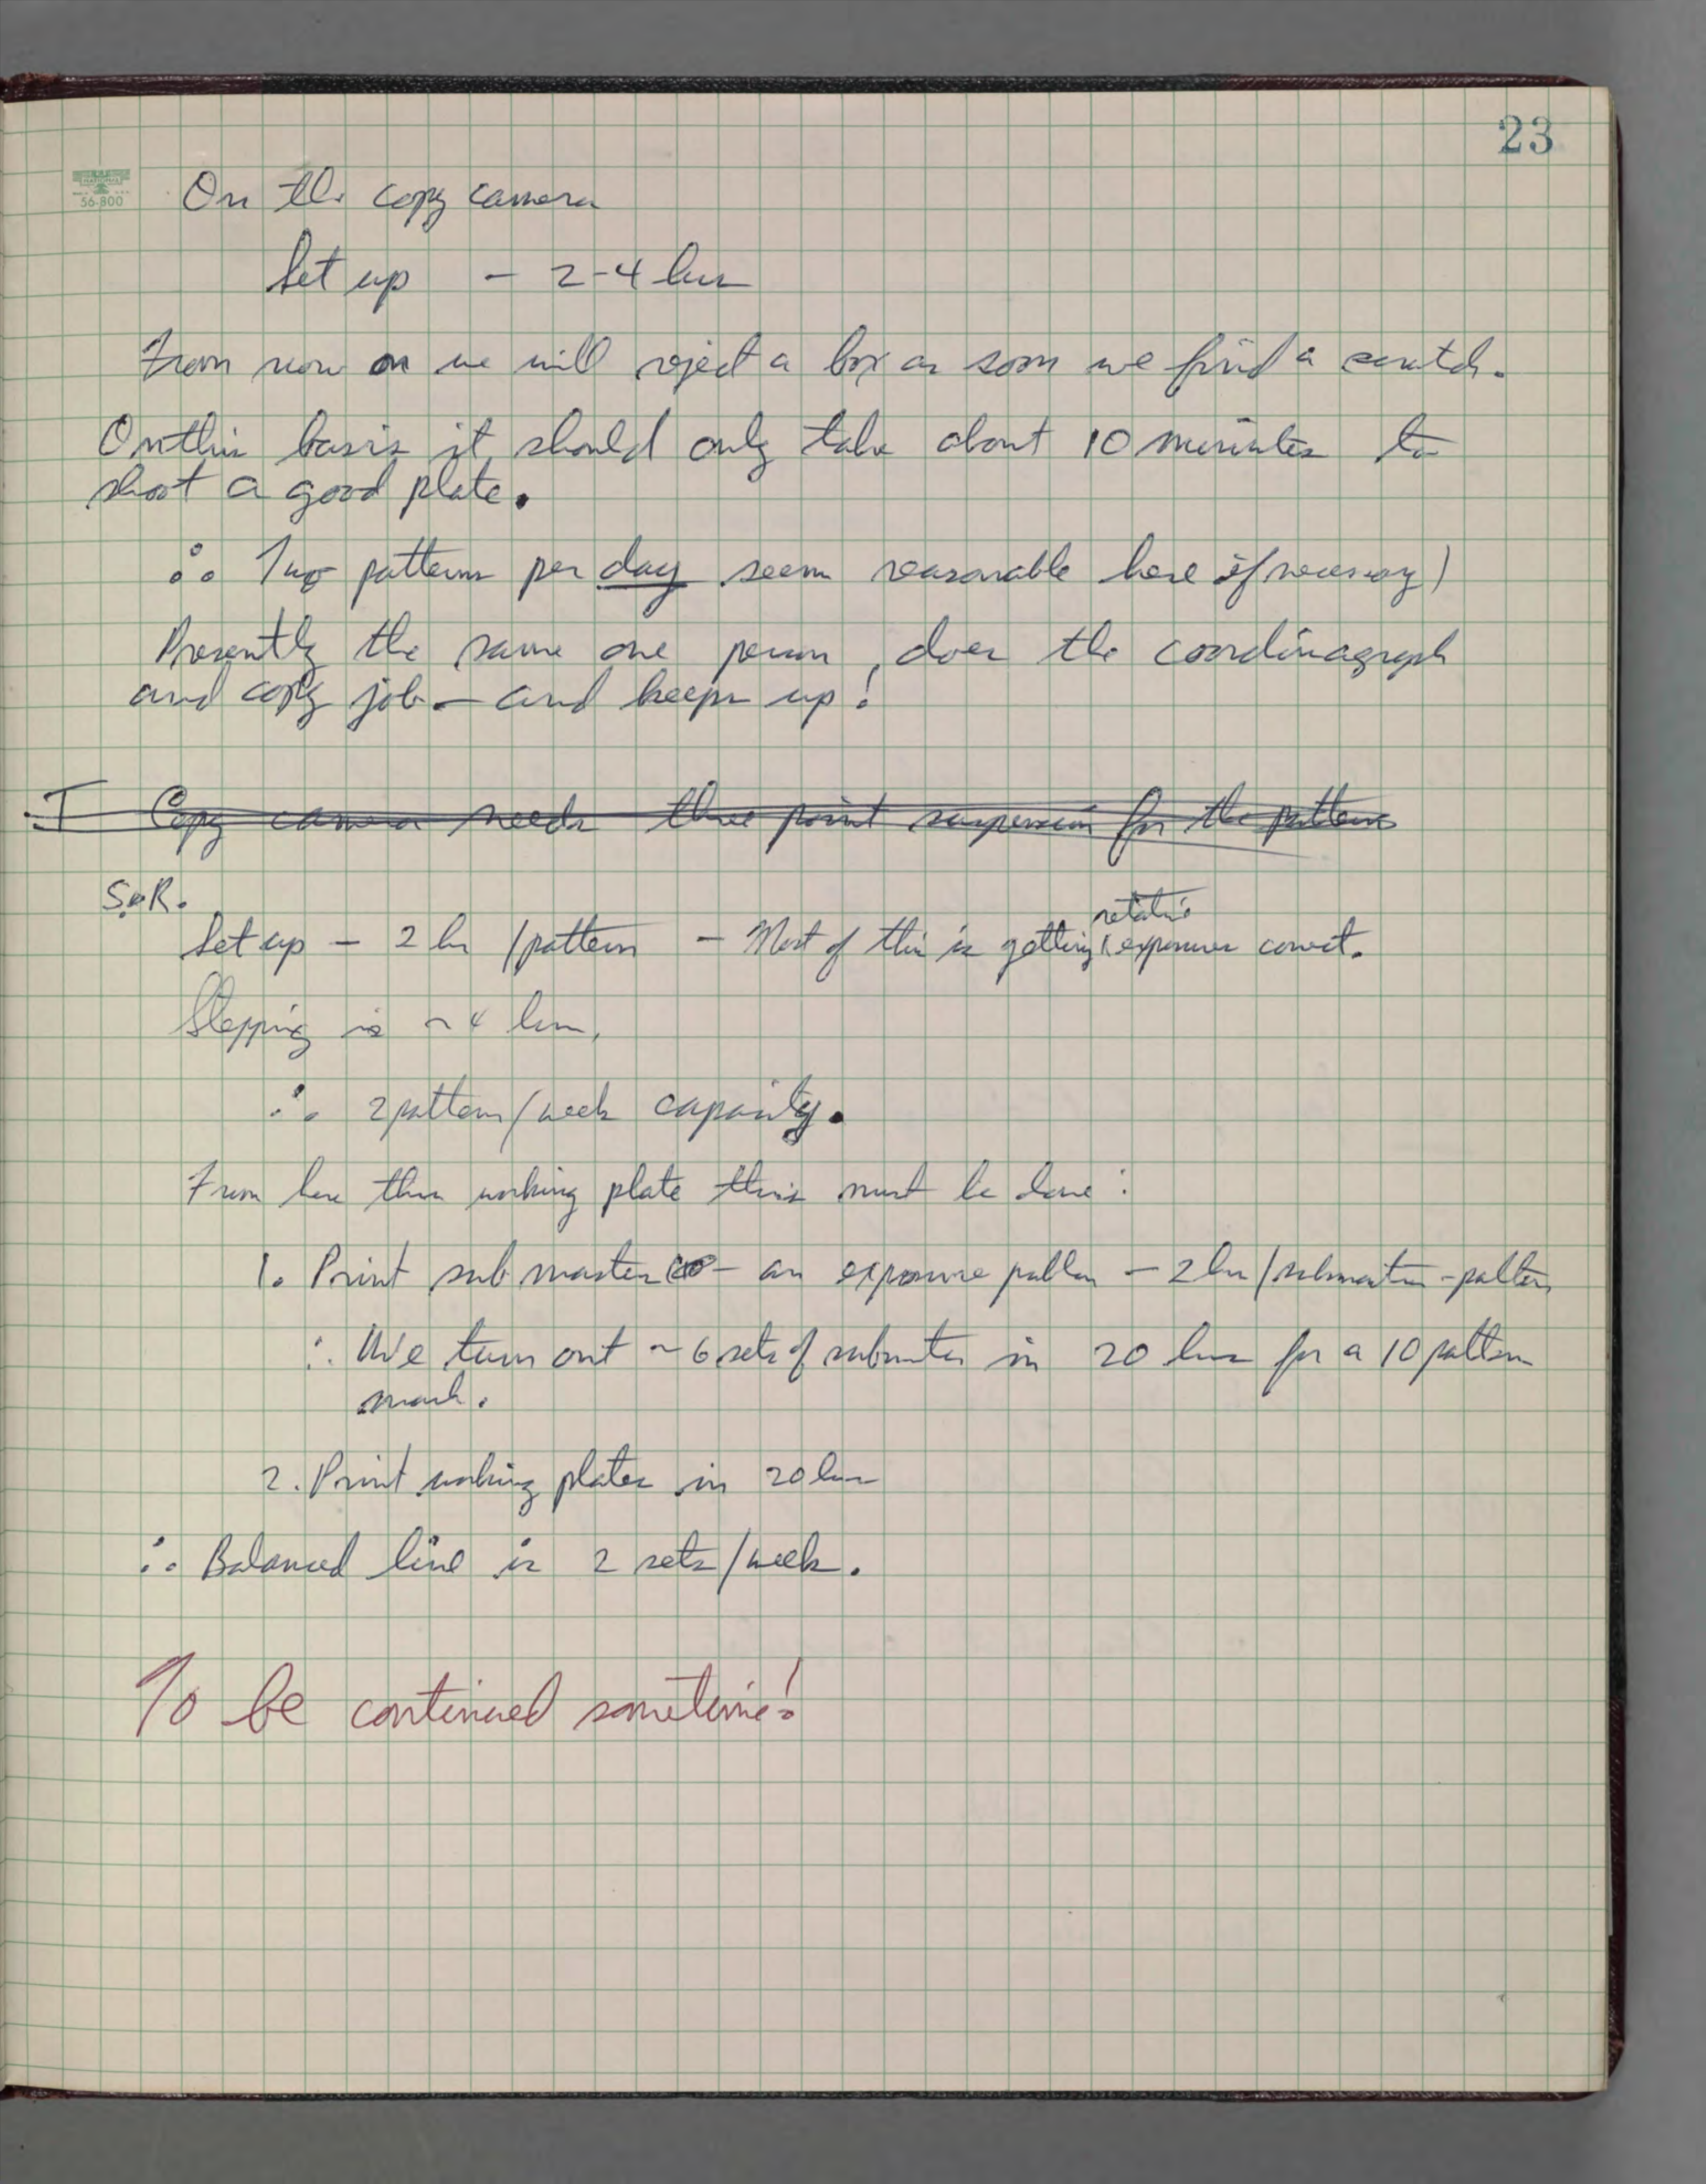 23
56-800
On the copy camera
Set up - 2-4 hrs
From now on we will reject a box as soon we find a scratch.
On this basis it should only take about 10 minutes to
shoot a good plate.
∴ Two patterns per day seem reasonable here if necessary)
Presently the same one person does the coordinagraph
and copy job - and keeps up!
I Copy camera needs three point suspension for the patterns
S&R.
relative
Set up - 2 hr /pattern - Most of this is getting exposures correct.
Stepping is ~4 hrs,
∴ 2 pattern/week capacity.
From here then working plate this must be done:
1. Print submaster - an exposure pattern - 2 hr/submaster-pattern
∴ We turn out ~6 sets of submaster in 20 hrs for a 10 pattern
mask.
2. Print working plates in 20 hrs
∴ Balanced line is 2 sets/week.
To be continued sometime!